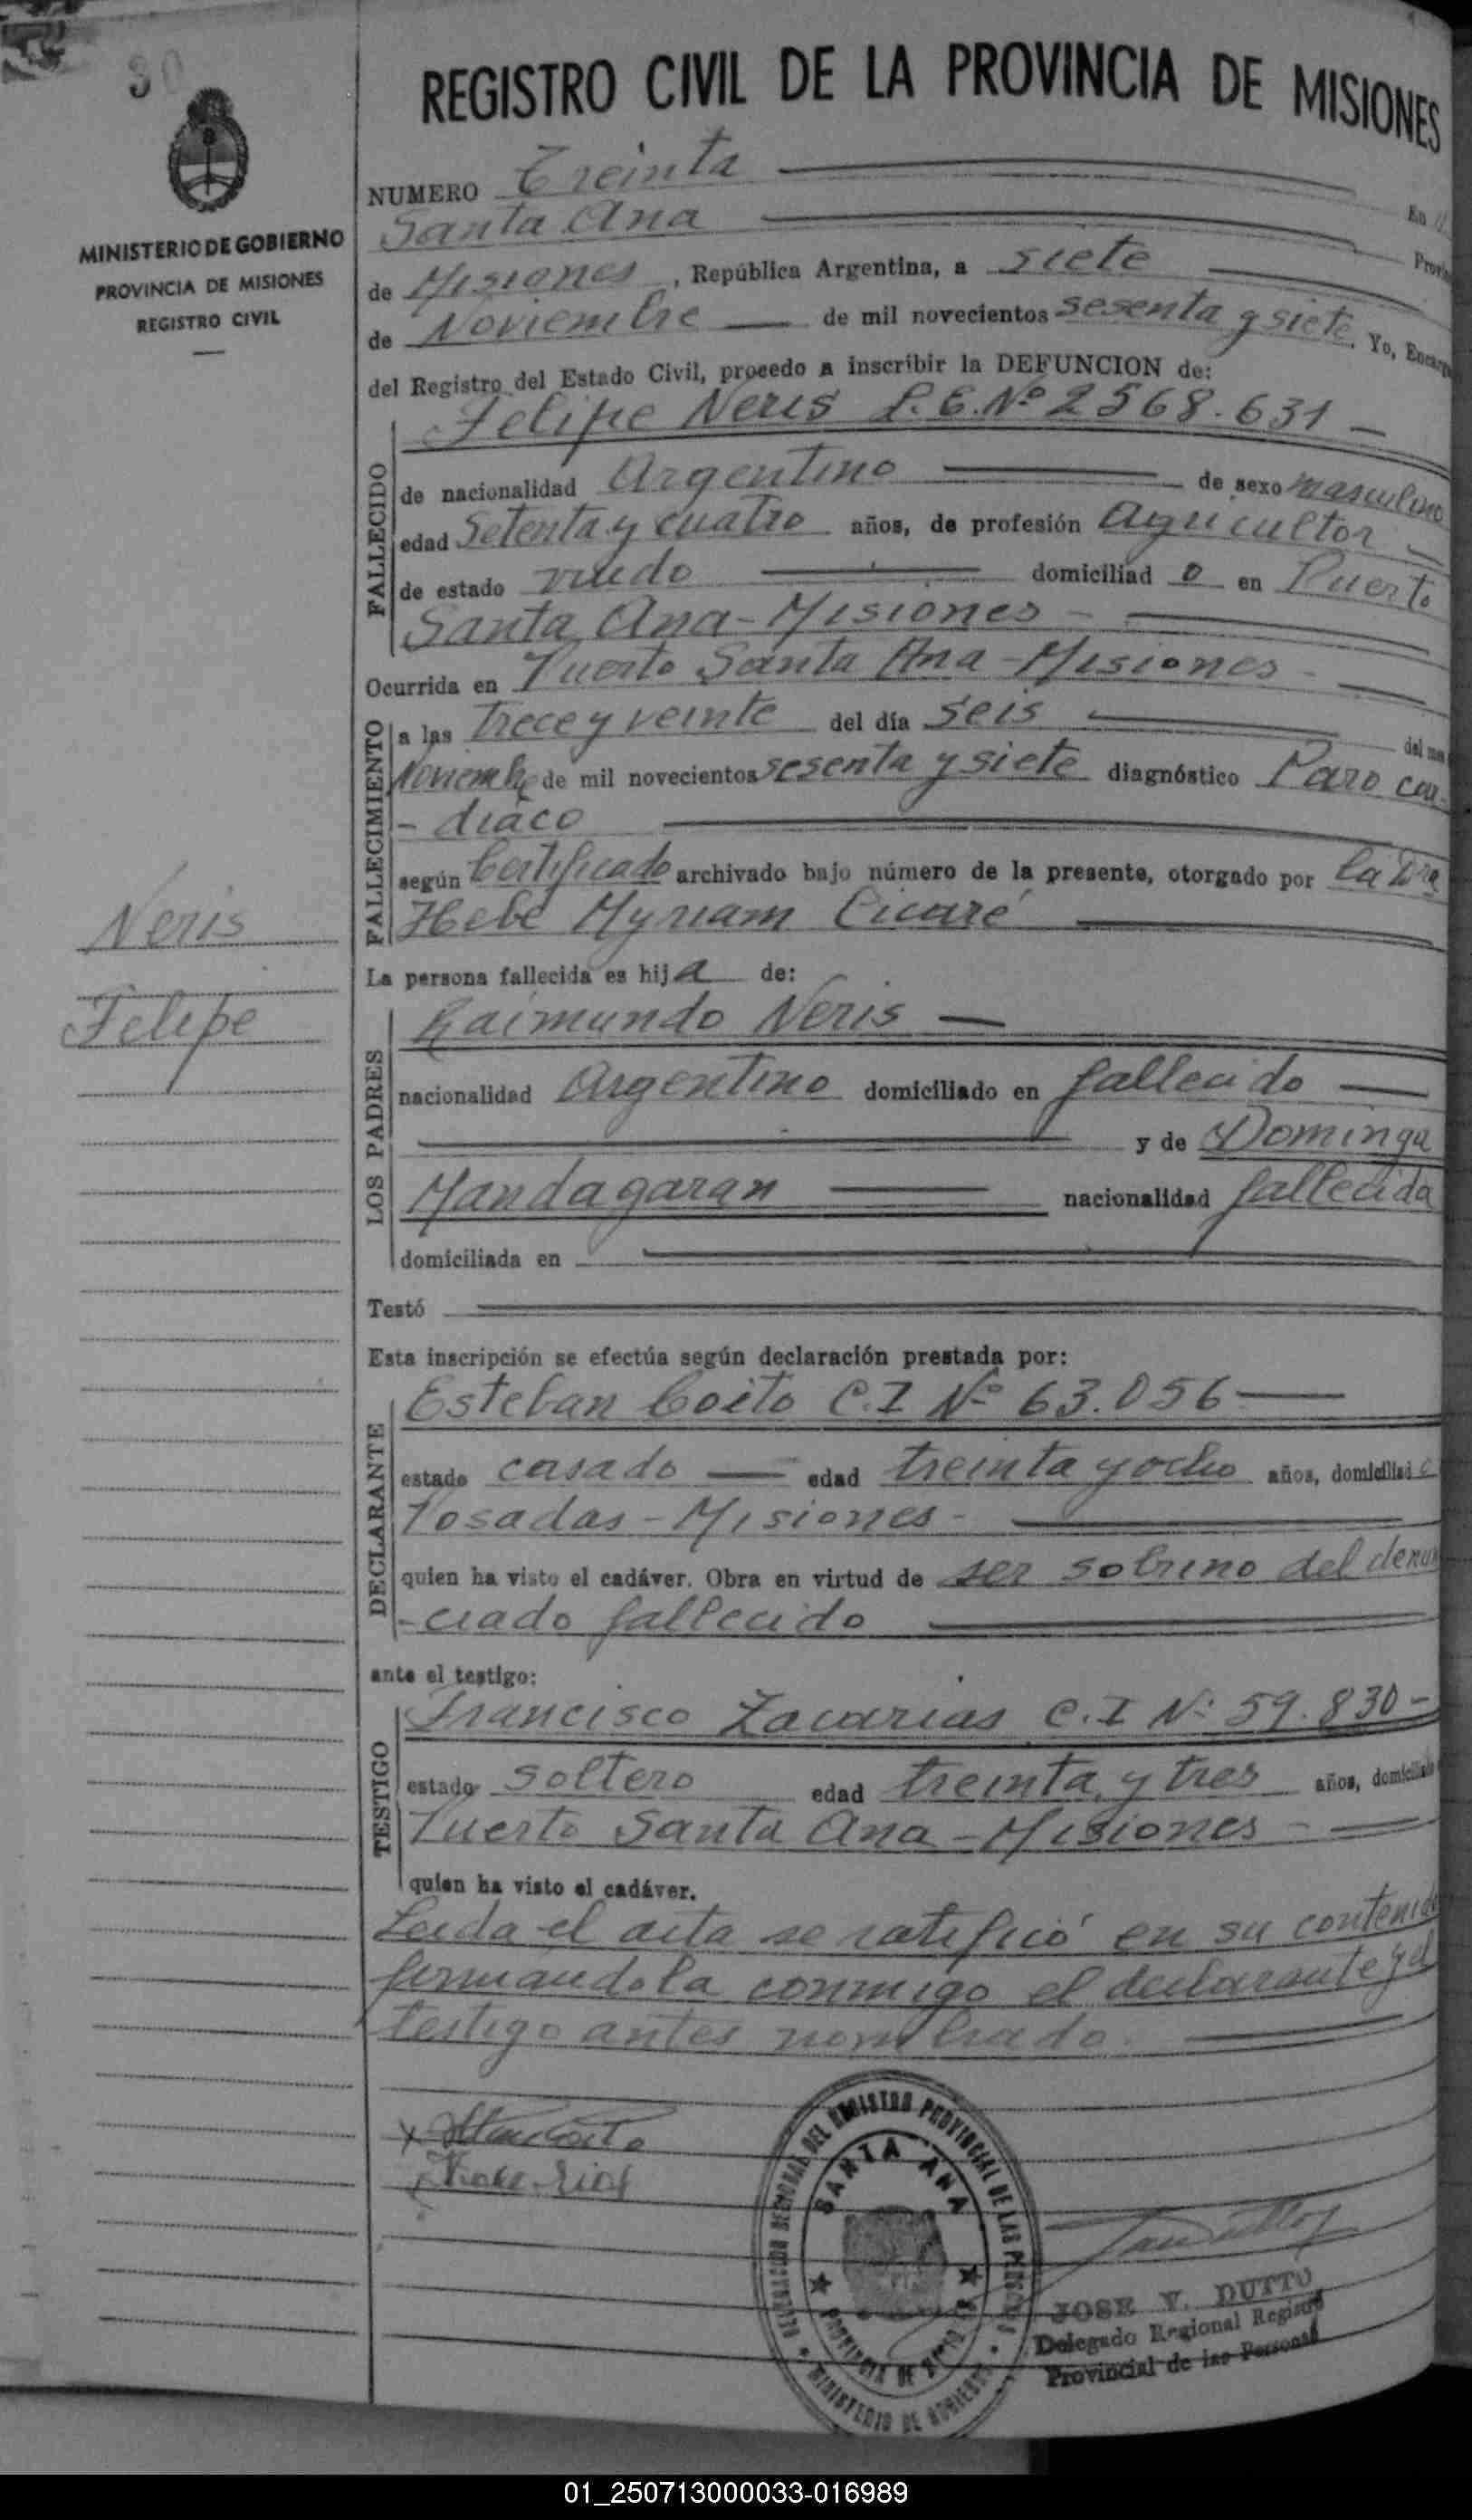 30
MINISTERIO DE GOBIERNO
PROVINCIA DE MISIONES
REGISTRO CIVIL
REGISTRO CIVIL DE LA PROVINCIA DE MISIONES
NUMERO Treinta En
Santa Ana Provin
de Misiones, República Argentina, a siete
de Noviembre de mil novecientos sesenta y siete. Yo, Encarg
del Registro del Estado Civil, procedo a inscribir la DEFUNCION de:
FALLECIDO
Felipe Neris L.E.Nº 2568.631 -
de nacionalidad Argentino de sexo masculino
edad Setenta y cuatro años, de profesión Agricultor
de estado viudo domiciliad o en Puerto
Santa Ana - Misiones -
Ocurrida en Puerto Santa Ana - Misiones -
FALLECIMIENTO
a las trece y veinte del día seis del mes
Noviembre de mil novecientos sesenta y siete diagnóstico Paro car-
- diáco
según Certificado archivado bajo número de la presente, otorgado por la Dra
Hebe Myriam Cicaré
Neris
Felipe
La persona fallecida es hija de:
LOS PADRES
Raimundo Neris
nacionalidad Argentino domiciliado en fallecido
y de Dominga
Mandagaran nacionalidad fallecida
domiciliada en
Testó
Esta inscripción se efectúa según declaración prestada por:
DECLARANTE
Esteban Coito C.I Nº 63.056
estado casado edad treinta y ocho años, domiciliad
Posadas - Misiones -
quien ha visto el cadáver. Obra en virtud de ser sobrino del denun
- ciado fallecido
ante el testigo:
TESTIGO
Francisco Zacarias C.I Nº 59.830 -
estado soltero edad treinta y tres años, domiciliado
Puerto Santa Ana - Misiones -
quien ha visto el cadáver.
Leida el acta se ratificó en su contenido
firmándola conmigo el declarante y el
testigo antes nombrado.
DELEGACION SECCIONAL DEL REGISTRO PROVINCIAL DE LAS PERSONAS
SANTA ANA
PROVINCIA DE
MINISTERIO DE GOBIERNO
JOSE V. DUTTO
Delegado Regional Registro
Provincial de las Personas
01_250713000033-016989